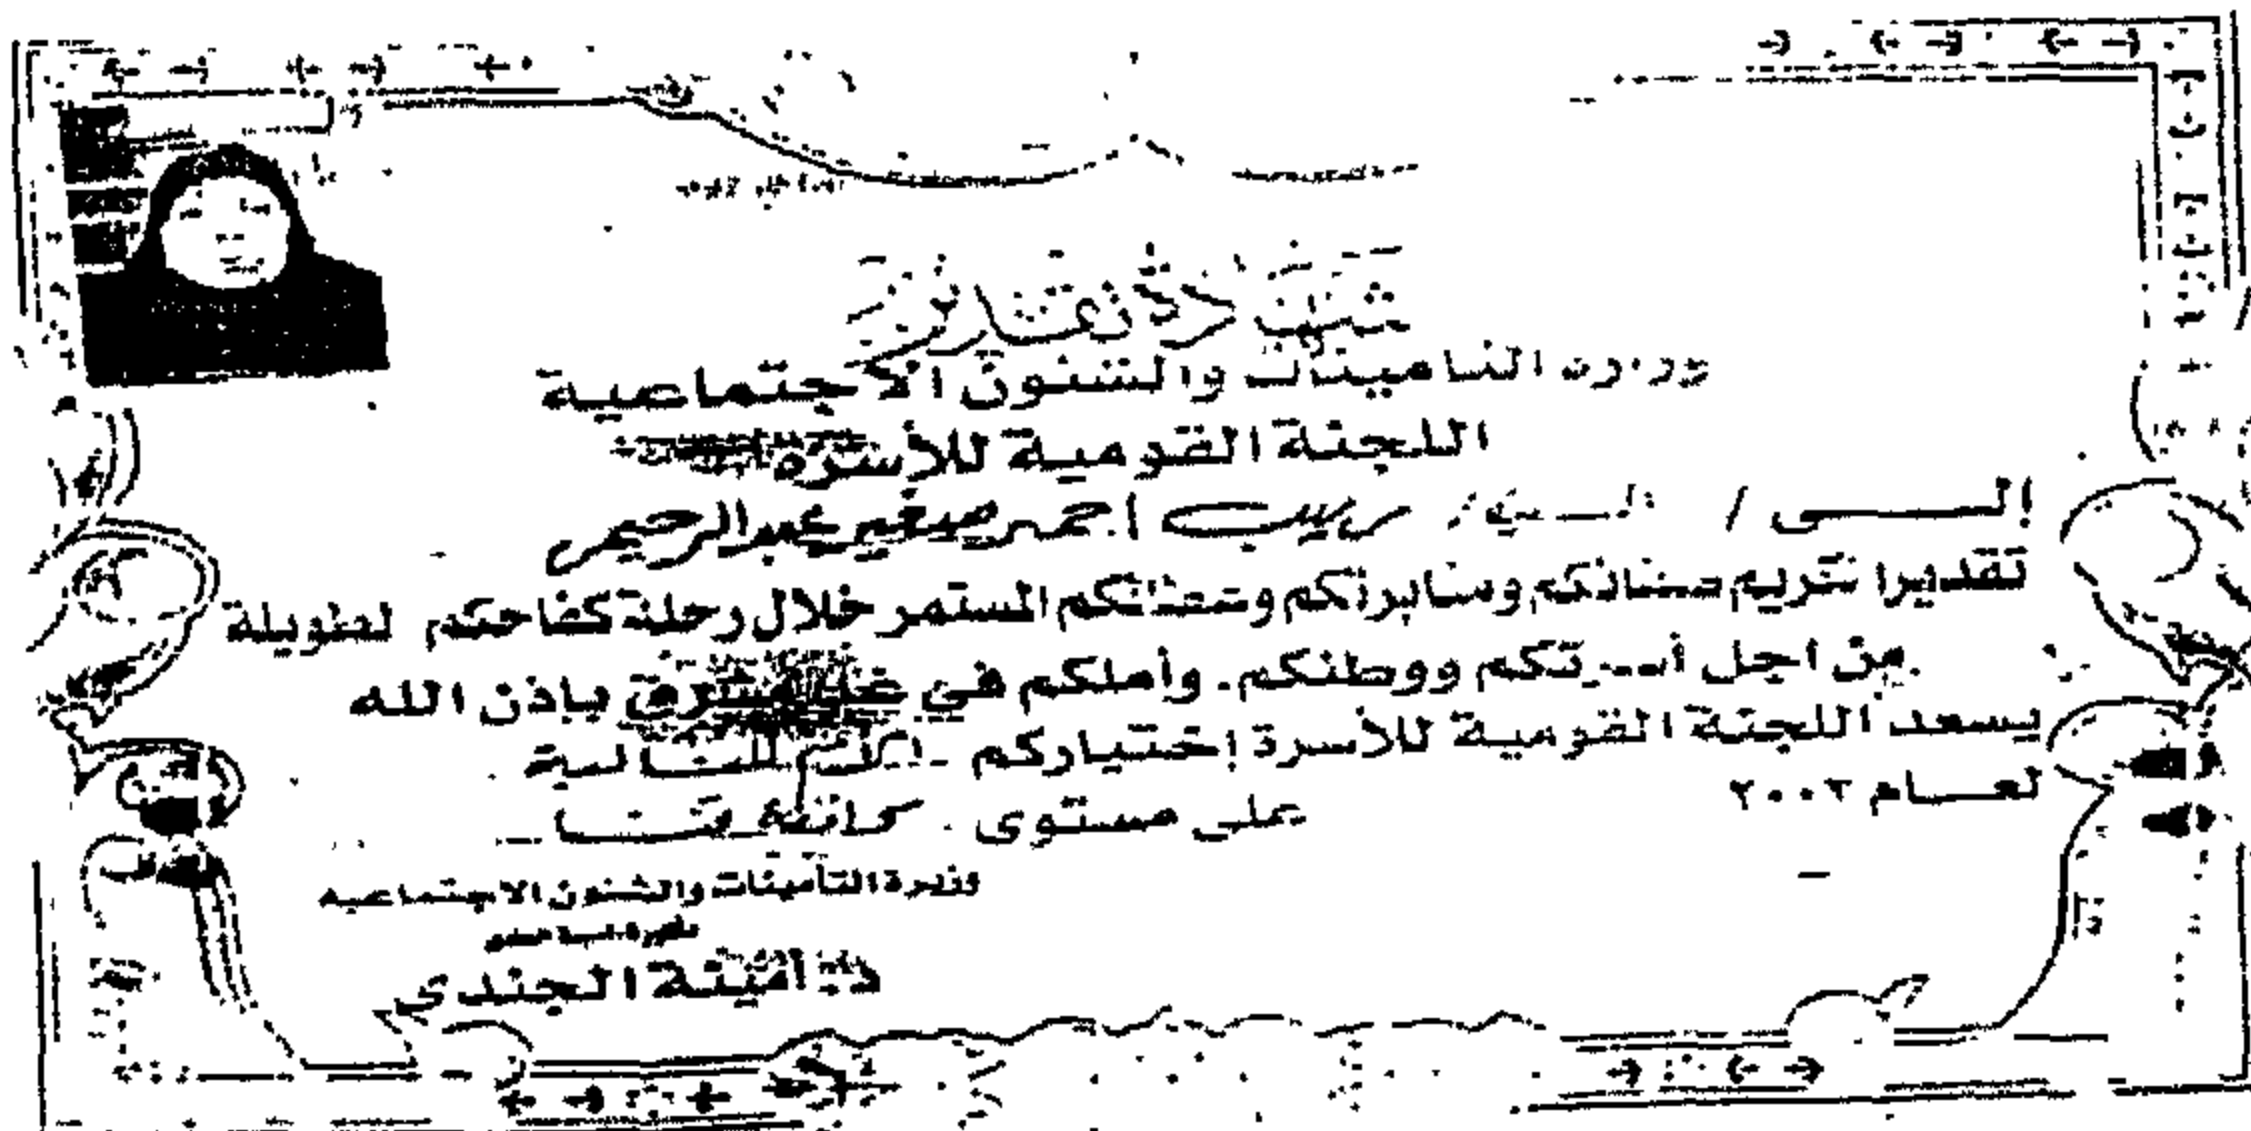 شهادة تقدير
وزارة التأمينات والشئون الاجتماعية
اللجنة القومية للأسرة
إلــى / السيدة / زينب احمد صغير عبد الرحيم
تقديرا لكريم عطائكم ومثابرتكم المستمر خلال رحلة كفاحكم الطويلة
من اجل أسرتكم ووطنكم. وأملكم في غد مشرق بإذن الله
يسعد اللجنة القومية للأسرة إختياركم الأم المثالية
لعــام ٢٠٠٣
على مستوى محافظة قنا
وزيرة التأمينات والشئون الاجتماعيه
د. أمينة الجندى